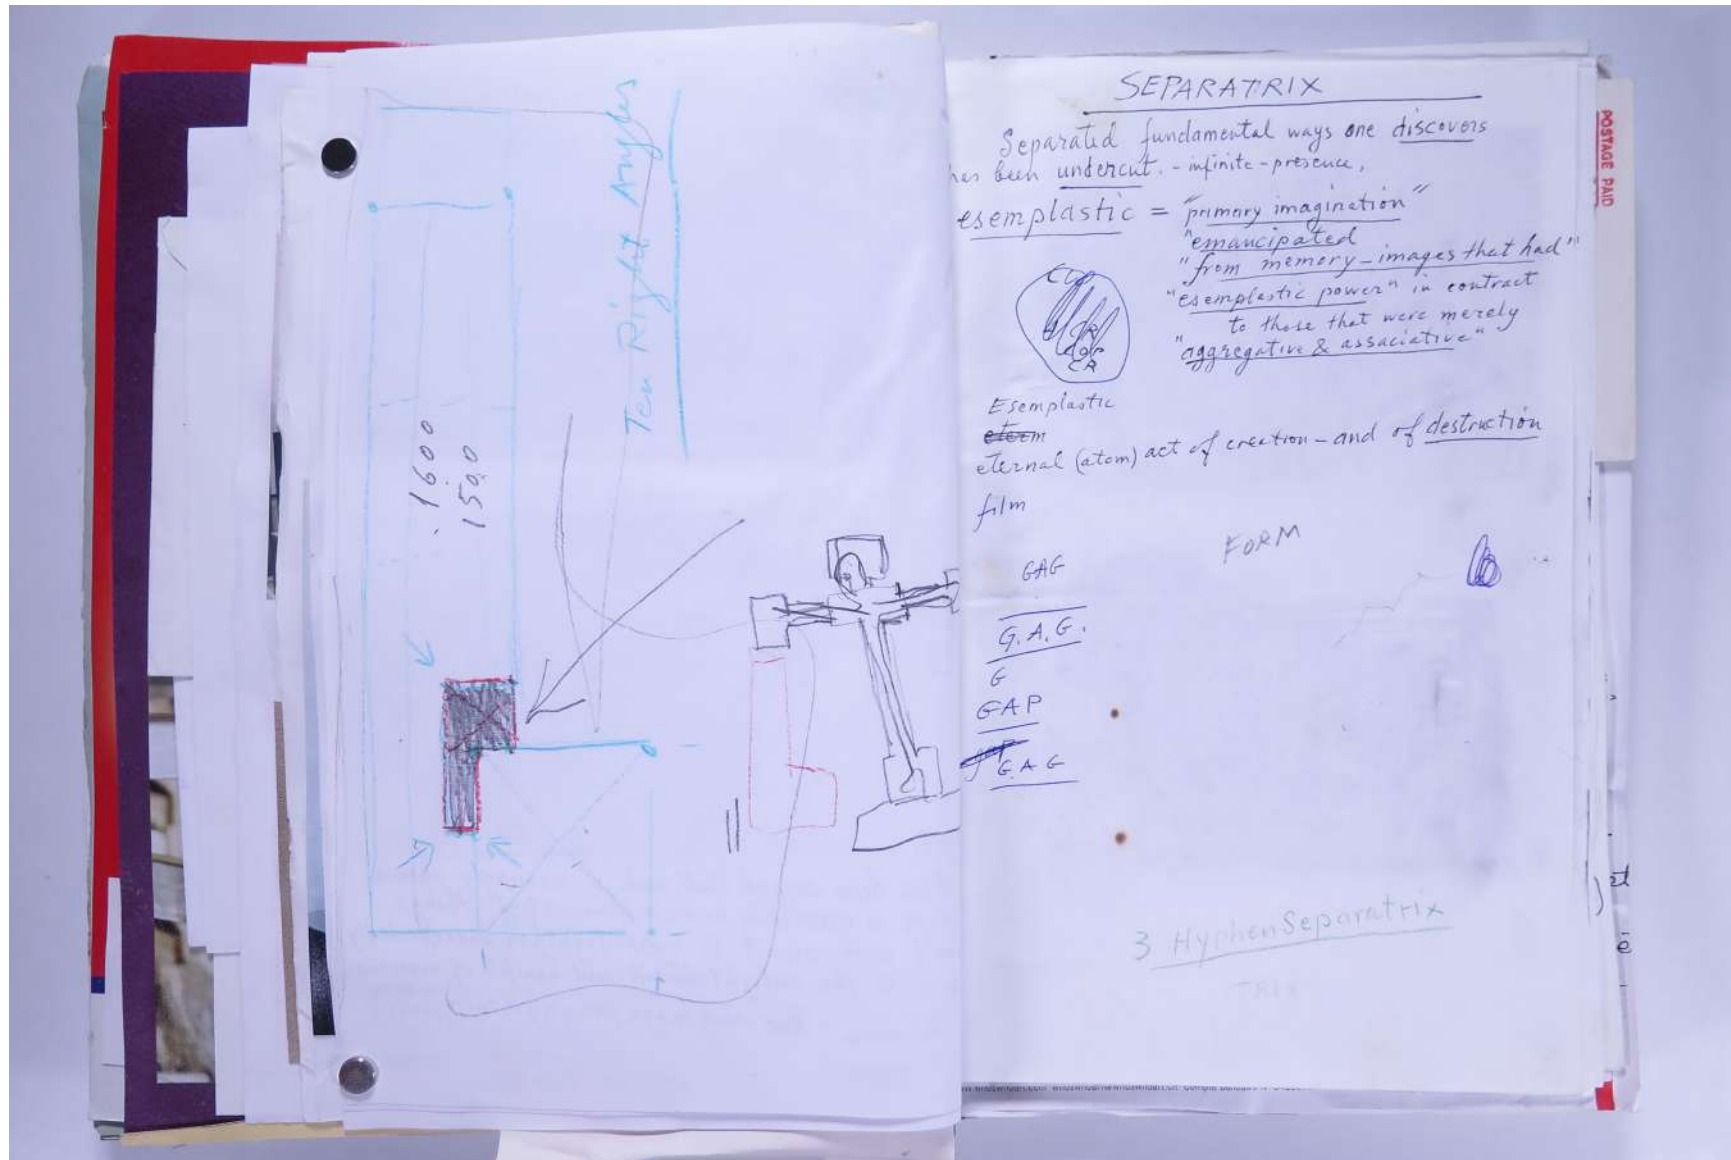 Ten Right Angles
.1600
150.0
SEPARATRIX
Separated fundamental ways one discovers
has been undercut. - infinite - presence,
esemplastic = "primary imagination"
"emancipated
"from memory - images that had"
"esemplastic power" in contract
to those that were merely
"aggregative & associative"
CR
Esemplastic
eterm
eternal (atom) act of creation - and of destruction
film
FORM
GAG
G.A.G.
G
GAP
GAG
3 HyphenSeparatrix
TRIX
POSTAGE PAID